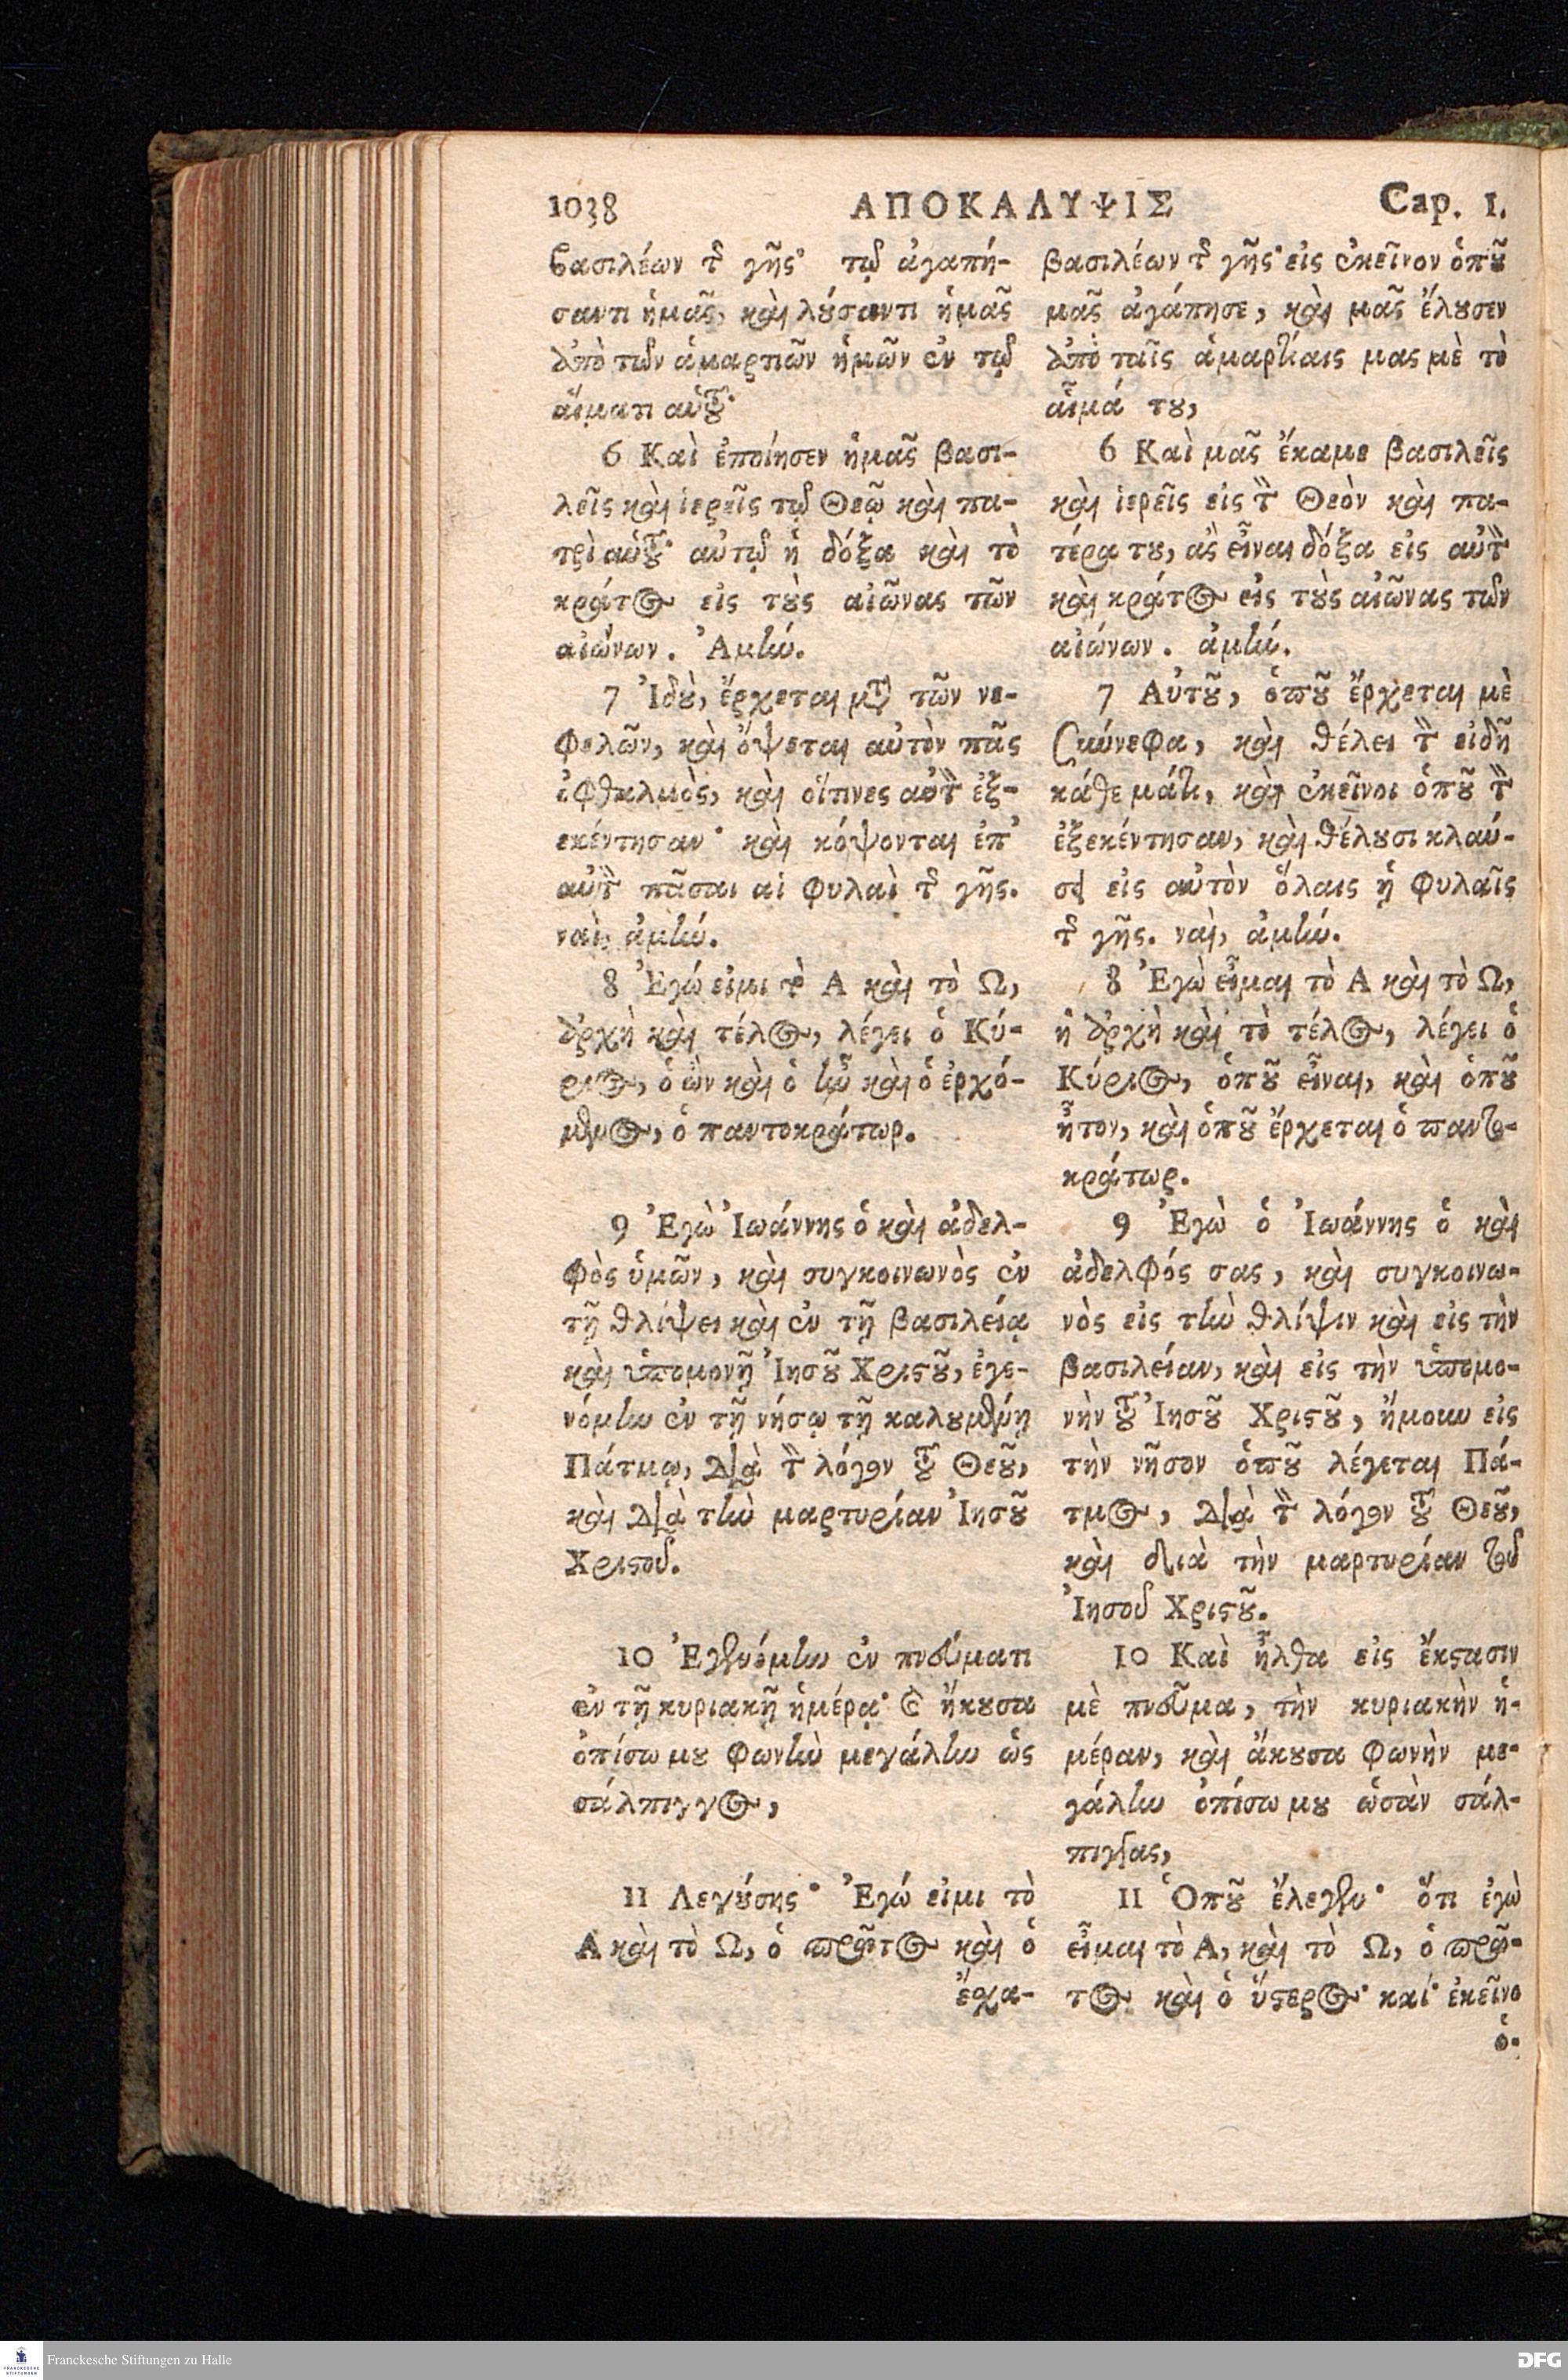 1038 ΑΠΟΚΑΛΥΨΙΣ Cap. 1.
βασιλέων τῆς γῆς· τῷ ἀγαπή-
σαντι ἡμᾶς, καὶ λύσαντι ἡμᾶς
ἀπὸ τῶν ἁμαρτιῶν ἡμῶν ἐν τῷ
αἵματι αὑτοῦ·
6 Καὶ ἐποίησεν ἡμᾶς βασι-
λεῖς καὶ ἱερεῖς τῷ Θεῷ καὶ πα-
τρὶ αὑτοῦ· αὐτῷ ἡ δόξα καὶ τὸ
κράτος εἰς τοὺς αἰῶνας τῶν
αἰώνων. Ἀμήν.
7 Ἰδοὺ, ἔρχεται μετὰ τῶν νε-
φελῶν, καὶ ὄψεται αὐτὸν πᾶς
ὀφθαλμὸς, καὶ οἵτινες αὐτὸν ἐξ-
εκέντησαν· καὶ κόψονται ἐπ'
αὐτὸν πᾶσαι αἱ φυλαὶ τῆς γῆς.
ναὶ, ἀμήν.
8 Ἐγώ εἰμι τὸ Α καὶ τὸ Ω,
ἀρχὴ καὶ τέλος, λέγει ὁ Κύ-
ριος, ὁ ὢν καὶ ὁ ἦν καὶ ὁ ἐρχό-
μενος, ὁ παντοκράτωρ.
9 Ἐγὼ Ἰωάννης ὁ καὶ ἀδελ-
φὸς ὑμῶν, καὶ συγκοινωνὸς ἐν
τῇ θλίψει καὶ ἐν τῇ βασιλείᾳ
καὶ ὑπομονῇ Ἰησοῦ Χριστοῦ, ἐγε-
νόμην ἐν τῇ νήσῳ τῇ καλουμένῃ
Πάτμῳ, διὰ τὸν λόγον τοῦ Θεοῦ,
καὶ διὰ τὴν μαρτυρίαν Ἰησοῦ
Χριστοῦ.
10 Ἐγενόμην ἐν πνεύματι
ἐν τῇ κυριακῇ ἡμέρᾳ· καὶ ἤκουσα
ὀπίσω μου φωνὴν μεγάλην ὡς
σάλπιγγος,
11 Λεγούσης· Ἐγώ εἰμι τὸ
Α καὶ τὸ Ω, ὁ πρῶτος καὶ ὁ
ἔσχα-
βασιλέων τῆς γῆς· εἰς ἐκεῖνον ὁποῦ
μᾶς ἀγάπησε, καὶ μᾶς ἔλουσεν
ἀπὸ ταῖς ἁμαρτίαις μας μὲ τὸ
αἷμά του,
6 Καὶ μᾶς ἔκαμε βασιλεῖς
καὶ ἱερεῖς εἰς τὸν Θεὸν καὶ πα-
τέρα του, ἂς εἶναι δόξα εἰς αὐτὸν
καὶ κράτος εἰς τοὺς αἰῶνας τῶν
αἰώνων. ἀμήν.
7 Αὐτοῦ, ὁποῦ ἔρχεται μὲ
σκύνεφα, καὶ θέλει τὸν εἰδῆ
κάθε μάτι, καὶ ἐκεῖνοι ὁποῦ τὸν
ἐξεκέντησαν, καὶ θέλουσι κλαύ-
σει εἰς αὐτὸν ὅλαις ἡ φυλαῖς
τῆς γῆς. ναὶ, ἀμήν.
8 Ἐγὼ εἶμαι τὸ Α καὶ τὸ Ω,
ἡ ἀρχὴ καὶ τὸ τέλος, λέγει ὁ
Κύριος, ὁποῦ εἶναι, καὶ ὁποῦ
ἦτον, καὶ ὁποῦ ἔρχεται ὁ παντο-
κράτωρ.
9 Ἐγὼ ὁ Ἰωάννης ὁ καὶ
ἀδελφός σας, καὶ συγκοινω-
νὸς εἰς τὴν θλίψιν καὶ εἰς τὴν
βασιλείαν, καὶ εἰς τὴν ὑπομο-
νὴν τοῦ Ἰησοῦ Χριστοῦ, ἤμουν εἰς
τὴν νῆσον ὁποῦ λέγεται Πά-
τμος, διὰ τὸν λόγον τοῦ Θεοῦ,
καὶ διὰ τὴν μαρτυρίαν τοῦ
Ἰησοῦ Χριστοῦ.
10 Καὶ ἦλθα εἰς ἔκστασιν
μὲ πνεῦμα, τὴν κυριακὴν ἡ-
μέραν, καὶ ἄκουσα φωνὴν με-
γάλην ὀπίσω μου ὡσὰν σάλ-
πιγγας,
11 Ὁποῦ ἔλεγεν· ὅτι ἐγὼ
εἶμαι τὸ Α, καὶ τὸ Ω, ὁ πρῶ-
τος καὶ ὁ ὕστερος· καί· ἐκεῖνο
ὁ-
FRANCKESCHE STIFTUNGEN
Franckesche Stiftungen zu Halle
DFG